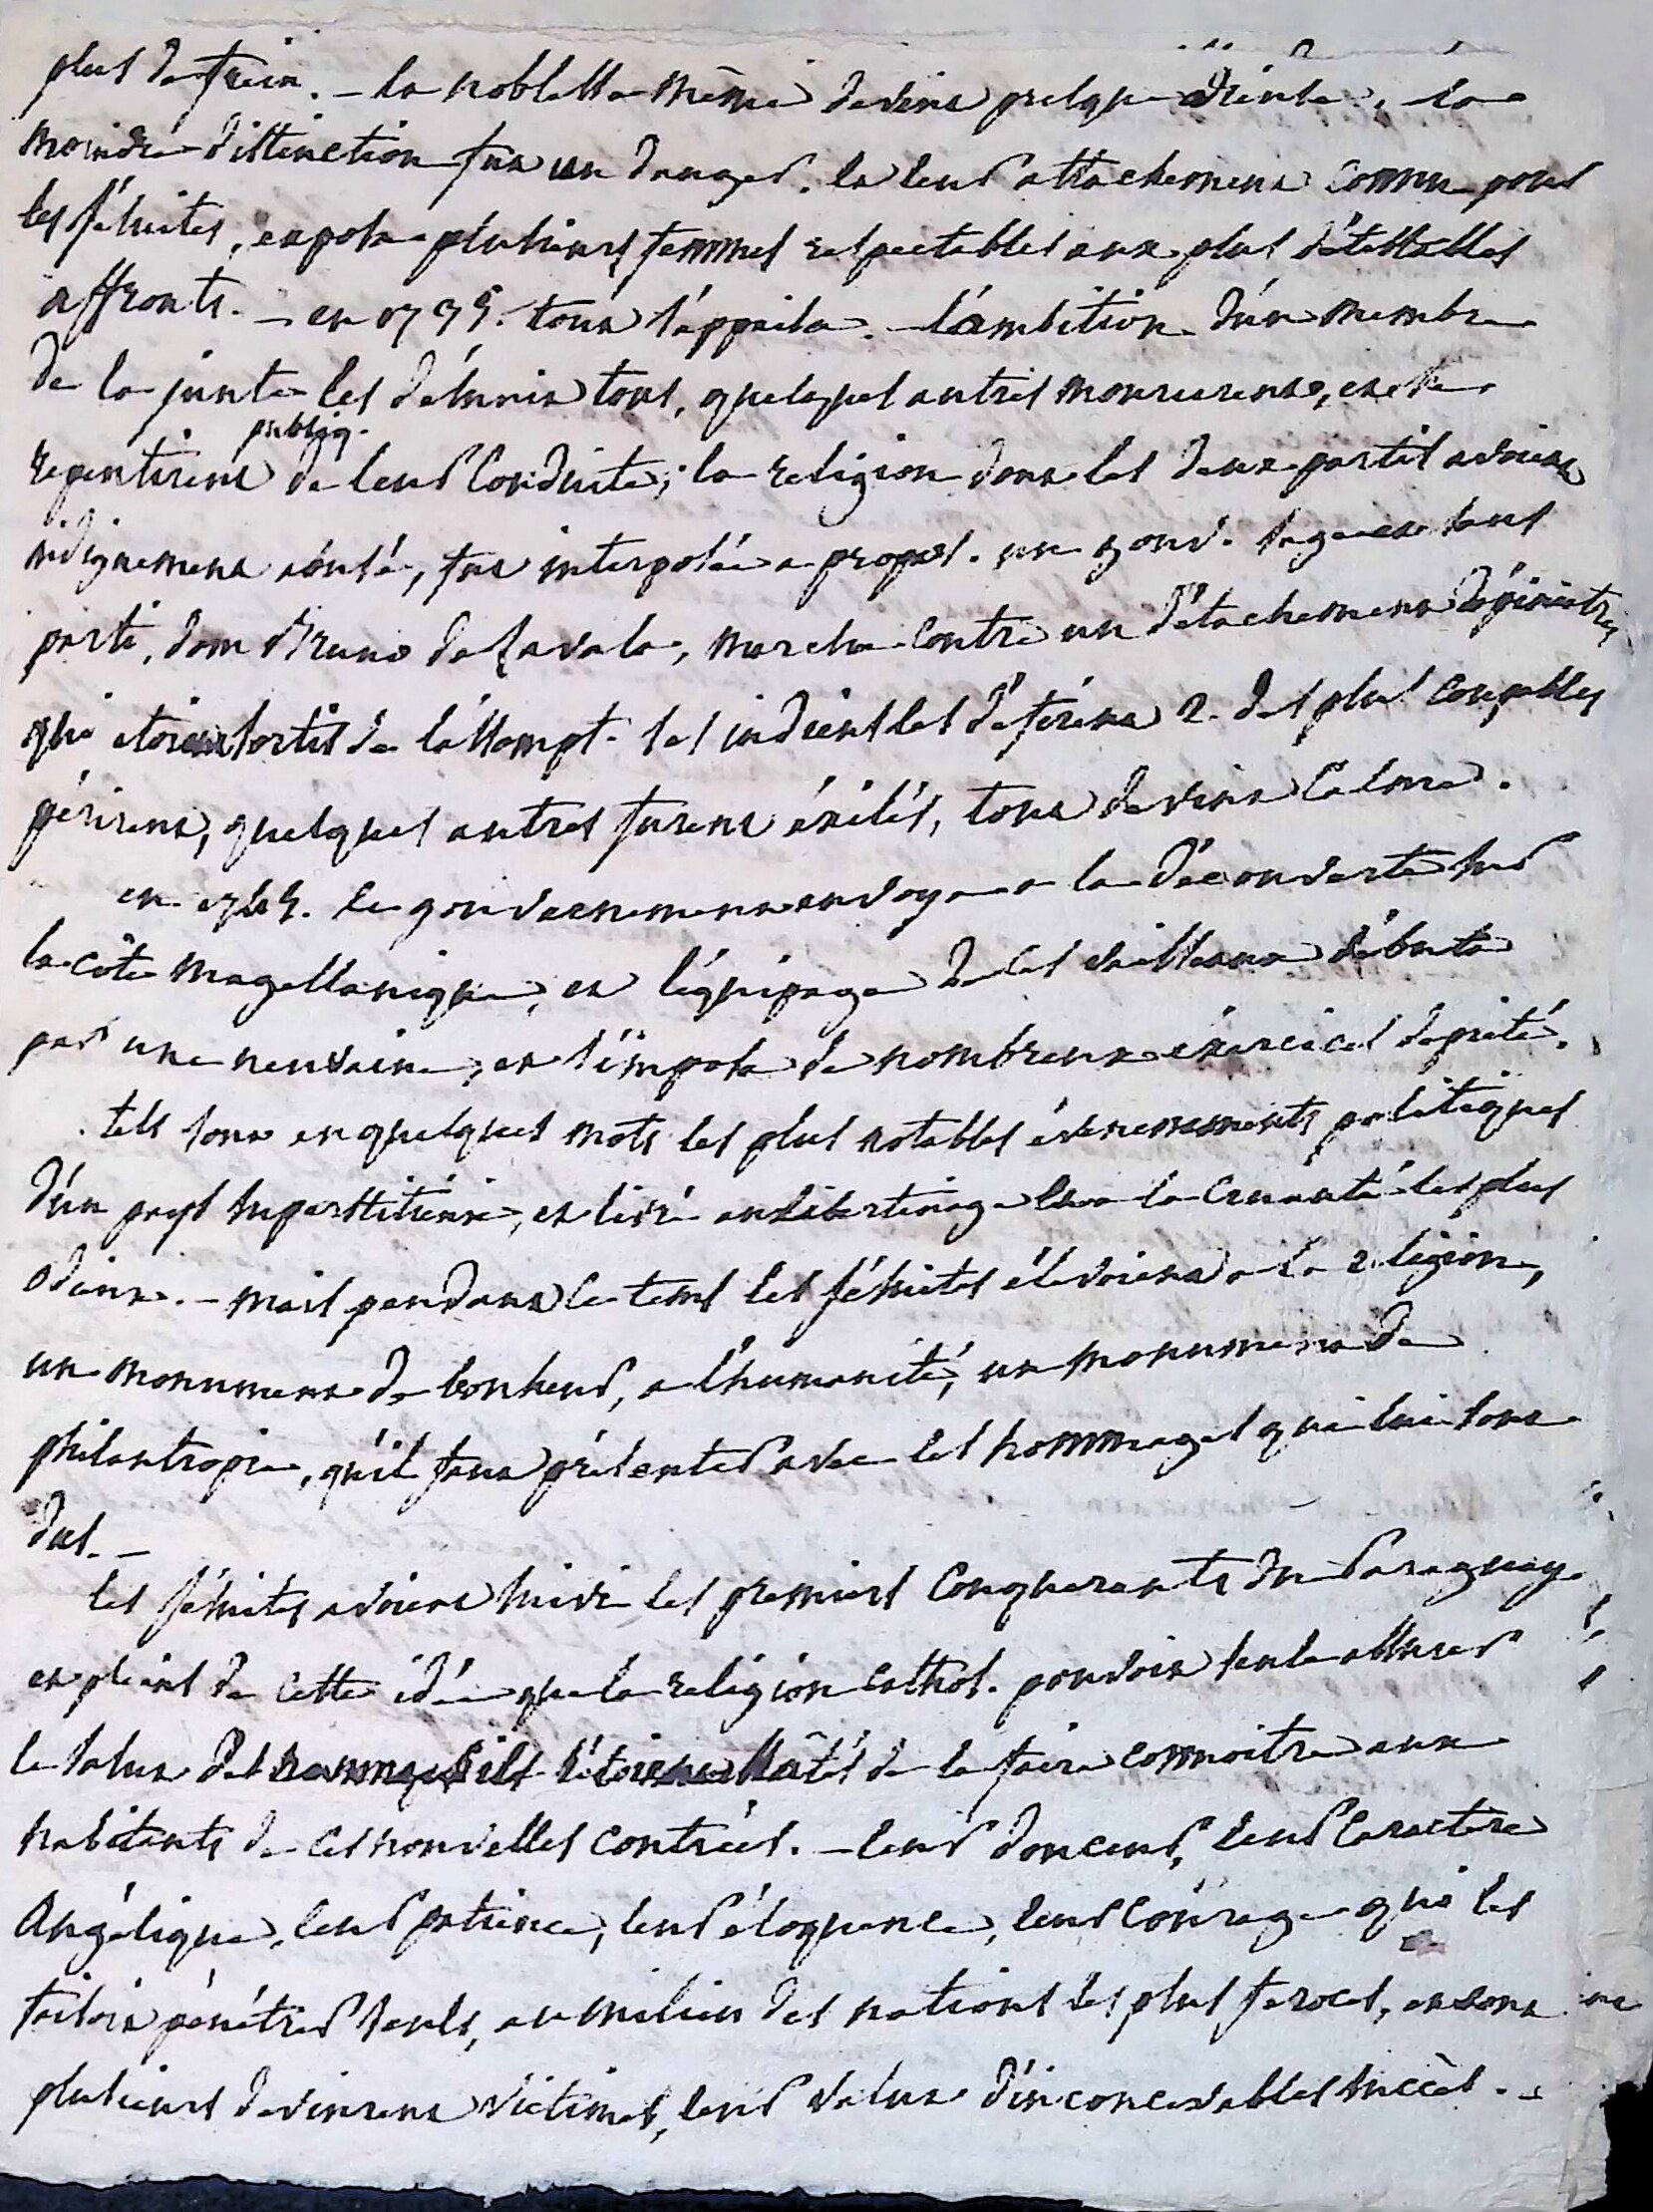 plus de frein. — la noblesse même devint presque crainte. la
moindre distinction fut un danger. la leur attachement connu pour
les jésuites, exposa plusieurs femmes respectables aux plus détestables
affronts. — en 1735. tout s'appaisa. — l'ambition d'un membre
de la junte les désunit tous, quelques autres moururent, et se
publiq.
repentirent de leur conduite; la religion dont les deux partis avoient
indignement abusé, fut interposée a propos. un gouv. sage et sans
parti, dom Bruno de Zavala, marcha contre un détachement d'opiniatres
qui etoient sortis de l'assompt. ses indiens les défirent 2. des plus coupables
périrent, quelques autres furent éxilés, tout devint calme.
en 1745. le gouvernement envoya a la découverte sur
la côte magellanique, et l'équipage de ces vaisseaux débuta
par une neuvaine, et s'imposa de nombreux éxercices de piété.
tels sont en quelques mots les plus notables évenements politiques
d'un pays superstitieux, et livré au libertinage et a la cruauté les plus
odieux. — mais pendant ce tems les jésuites élevoient a la religion,
un monument de bonheur, a l'humanité, un monument de
philantropie, qu'il faut présenter avec les hommages qui lui sont
dus. —
les jésuites avoient suivi les premiers conquerants du Paraguay
et pleins de cette idée que la religion cathol. pouvoit seule assurer
le salut des hommes ils s'étoient hâtés de la faire connoitre aux
habitants de ces nouvelles contrées. — leur douceur, leur caractere
angélique, leur patience, leur éloquence, leur courage qui les
faisoit pénétrer seuls, au milieu des nations les plus feroces, et dont
plusieurs devinrent victimes, leur valut d'inconcevables succès. —